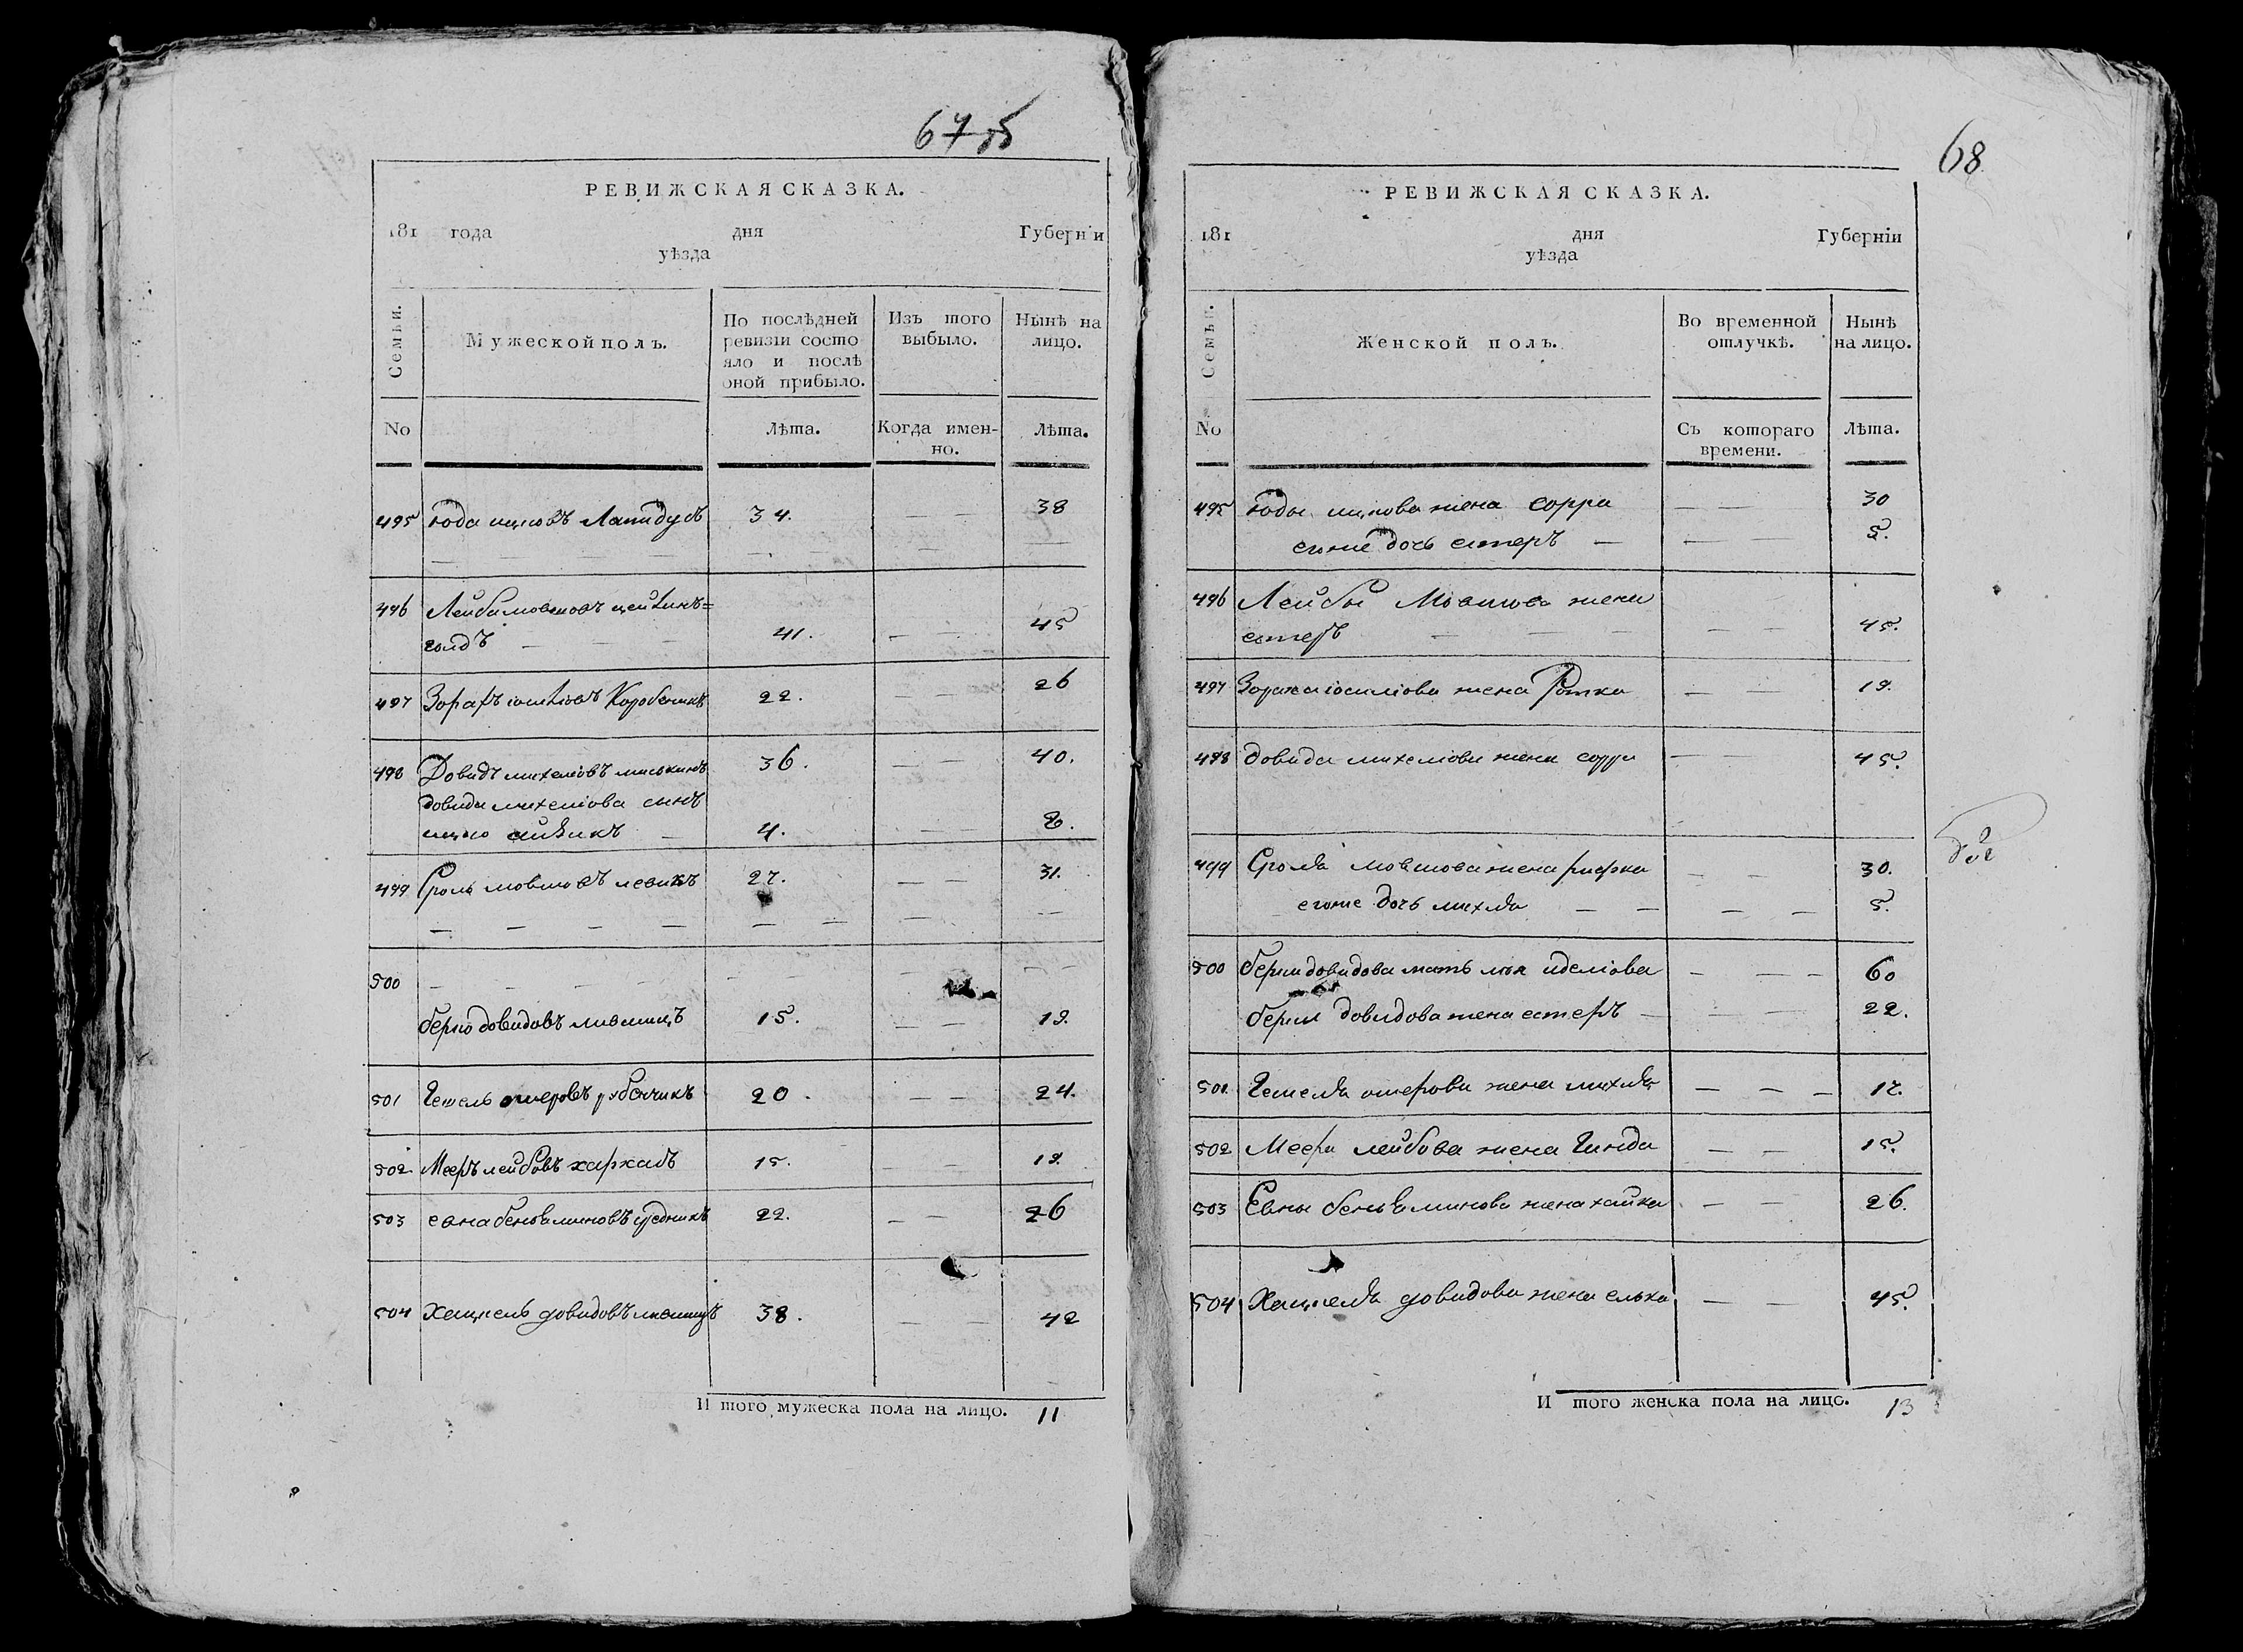 67 об
РЕВИЖСКАЯ СКАЗКА.
181 года дня Губерніи
уѣзда
Семьи.
Мужеской полъ.
По послѣдней ревизіи состояло и послѣ оной прибыло.
Изъ того выбыло.
Нынѣ на лицо.
No
Лѣта.
Когда именно.
Лѣта.
495 юда ицковъ Лапидусъ 34. — — 38
496 Лейба мовшовъ цейлин=
голдъ — 41. — — 45
497 Зорахъ іосиліовъ Коробочникъ 22. — — 26
498 Довидъ михеліовъ миськинъ 36. — — 40.
довида михеліова сынъ
ицко айзикъ — 4. — — 8.
499 Сроль мовшовъ левинъ 27. — — 31.
500 — — — —
берко довидовъ лившицъ 15. — — 19.
501 Гешель ошеровъ рубенчикъ 20. — — 24.
502 Мееръ лейбовъ харкасъ 15. — 19.
503 евна беньяминовъ 22. — — 26
504 Хацкель довидовъ лившицъ 38. — — 42
И того мужеска пола на лицо. 11
68
РЕВИЖСКАЯ СКАЗКА.
181 дня Губерніи
уѣзда
Семьи.
Женской полъ.
Во временной отлучкѣ.
Нынѣ на лицо.
No
Съ котораго времени.
Лѣта.
495 юды ицкова жена сорра — — 30
егоже дочь естеръ — — — 5.
496 Лейбы Мовшова жена
естеръ — — — — — 45.
497 Зораха іосиліова жена Ротка — — 19.
498 довида михеліова жена сорра — — 45.
499 Сроля мовшова жена рифка — — 30.
егоже дочь михля — — — — 5.
500 берки довидова мать иделіова — — — 60
берки довидова жена естеръ — — — 22.
501. Гешеля ошерова жена михля — — — 17.
502 Меера лейбова жена Гинда — — 15.
503 Евны беньяминова жена хайка — — 26.
504 Хацкеля довидова жена елька — — 45.
И того женска пола на лицо. 13